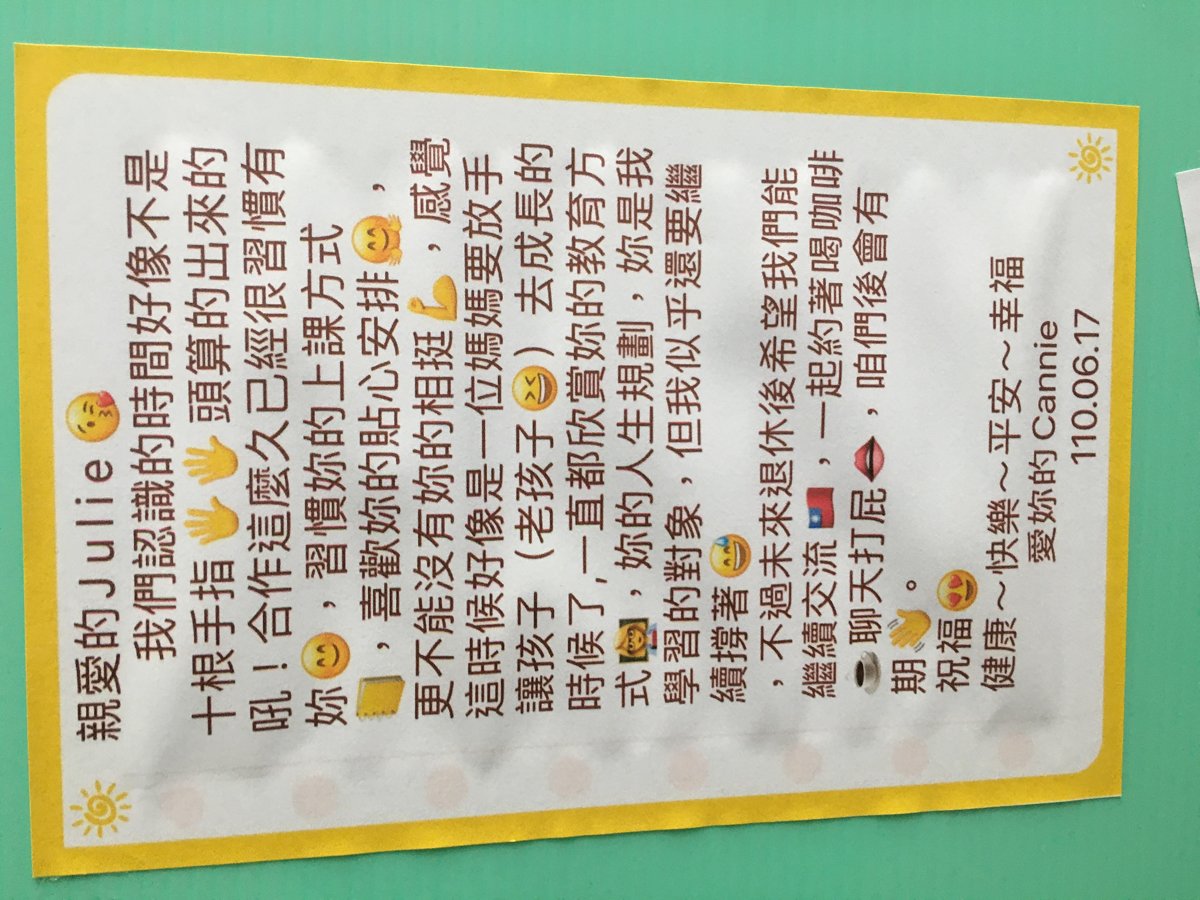 親愛的Julie😘
我們認識的時間好像不是
十根手指👋👋頭算的出來的
吼！合作這麼久已經很習慣有
妳😊，習慣妳的上課方式
📒，喜歡妳的貼心安排🤗，
更不能沒有妳的相挺💪，感覺
這時候好像是一位媽媽要放手
讓孩子（老孩子😆）去成長的
時候了,一直都欣賞妳的教育方
式👩‍🏫，妳的人生規劃，妳是我
學習的對象，但我似乎還要繼
續撐著😅
，不過未來退休後希望我們能
繼續交流🇹🇼，一起約著喝咖啡
☕聊天打屁👄，咱們後會有
期👋。
祝福😍
健康～快樂～平安～幸福
愛妳的Cannie
110.06.17